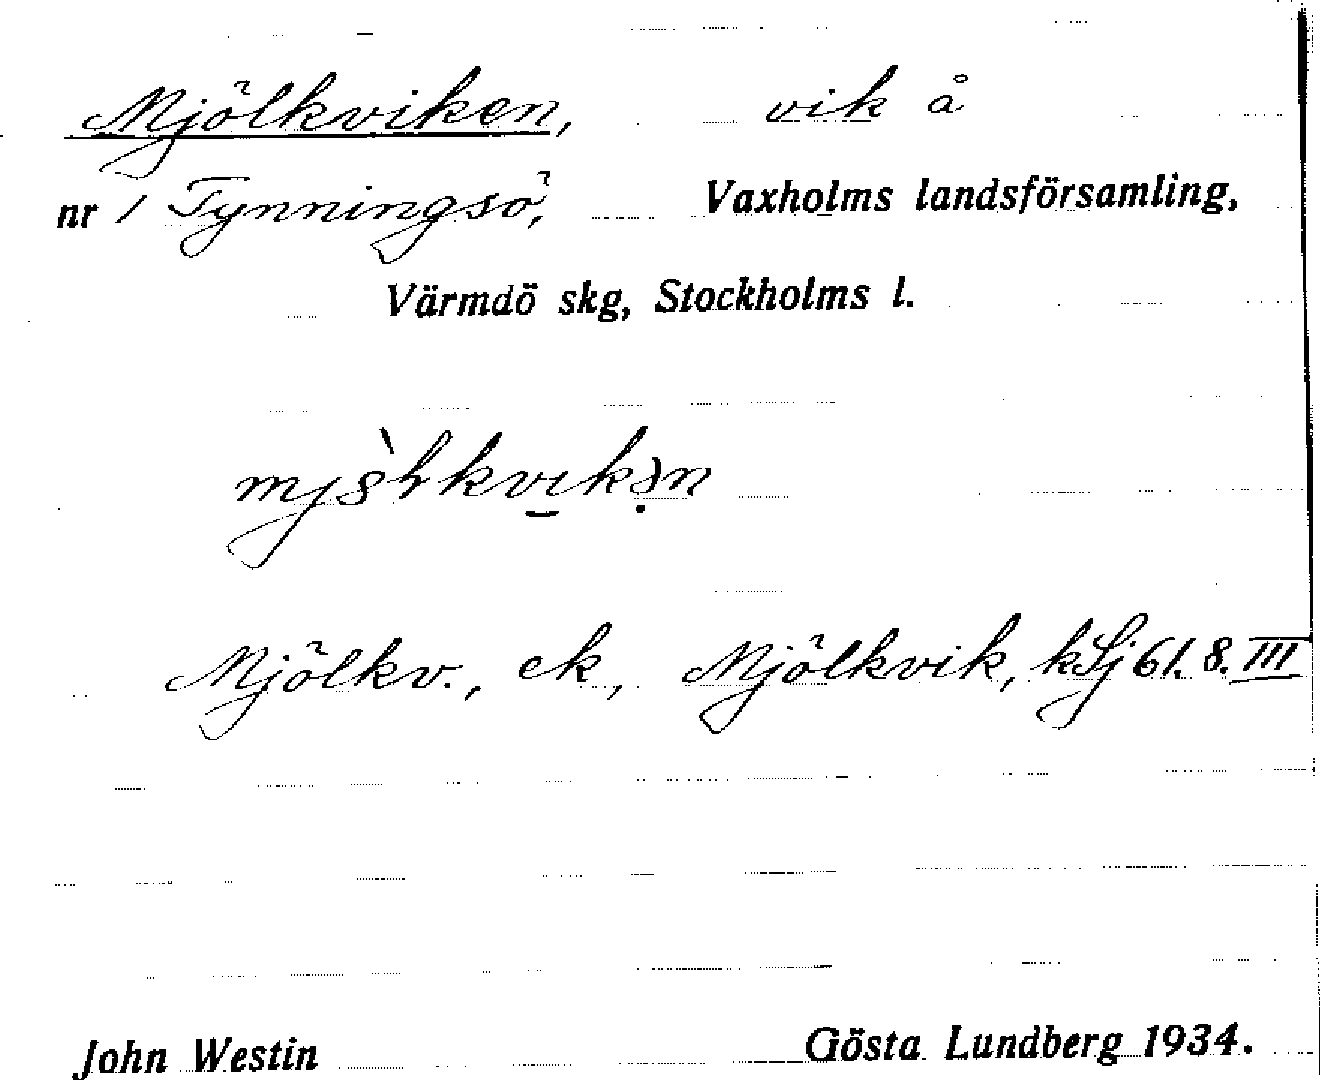 Mjölkviken, vik å
nr 1 Tynningsö, Vaxholms landsförsamling,
Värmdö skg, Stockholms l.
Mjölkv., ek, Mjölkvik, kSj 61. 8. III
John Westin Gösta Lundberg 1934.